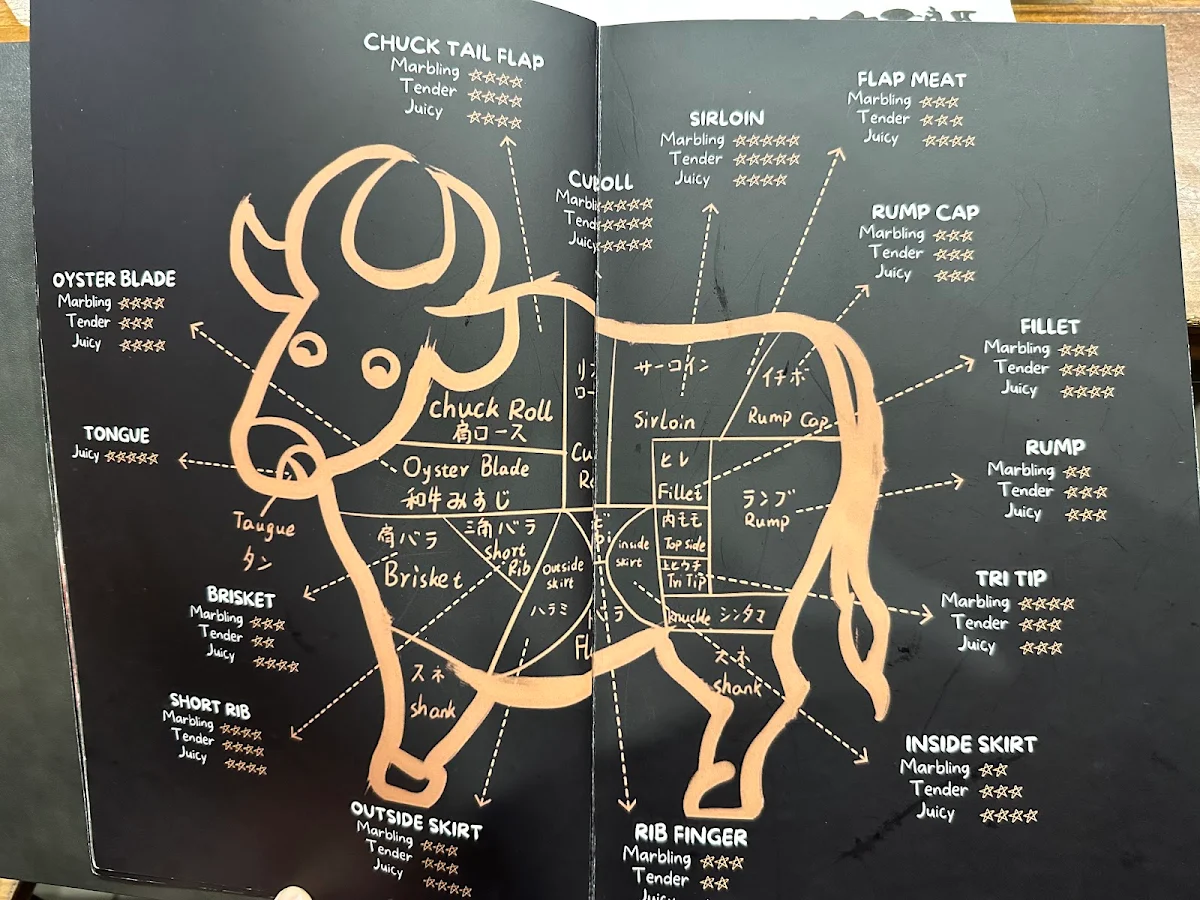 CHUCK TAIL FLAP
Marbling ☆☆☆☆
Tender ☆☆☆☆
Juicy ☆☆☆☆
FLAP MEAT
Marbling ☆☆☆
Tender ☆☆☆
Juicy ☆☆☆☆
SIRLOIN
Marbling ☆☆☆☆☆
Tender ☆☆☆☆☆
Juicy ☆☆☆☆
☆☆☆☆
☆☆☆☆
☆☆☆☆
RUMP CAP
Marbling ☆☆☆
Tender ☆☆☆
Juicy ☆☆☆
OYSTER BLADE
Marbling ☆☆☆☆
Tender ☆☆☆
Juicy ☆☆☆☆
FILLET
Marbling ☆☆☆
Tender ☆☆☆☆☆
Juicy ☆☆☆☆
TONGUE
Juicy ☆☆☆☆☆
RUMP
Marbling ☆☆
Tender ☆☆☆
Juicy ☆☆☆
Chuck Roll
肩ロース
Oyster Blade
和牛みすじ
サーロイン
Sirloin
イチボ
Rump Cap
ヒレ
Fillet
ランプ
Rump
内モモ
Top side
Tri Tip
inside
skirt
knuckle シンタマ
Taugue
タン
肩バラ
Brisket
三角バラ
Short
Rib
Outside
skirt
ハラミ
スネ
shank
スネ
shank
BRISKET
Marbling ☆☆☆
Tender ☆☆
Juicy ☆☆☆☆
TRI TIP
Marbling ☆☆☆☆
Tender ☆☆☆
Juicy ☆☆☆
SHORT RIB
Marbling ☆☆☆☆
Tender ☆☆☆☆
Juicy ☆☆☆☆
INSIDE SKIRT
Marbling ☆☆
Tender ☆☆☆
Juicy ☆☆☆☆
OUTSIDE SKIRT
Marbling ☆☆☆
Tender ☆☆☆
Juicy ☆☆☆☆
RIB FINGER
Marbling ☆☆☆
Tender ☆☆
Juicy